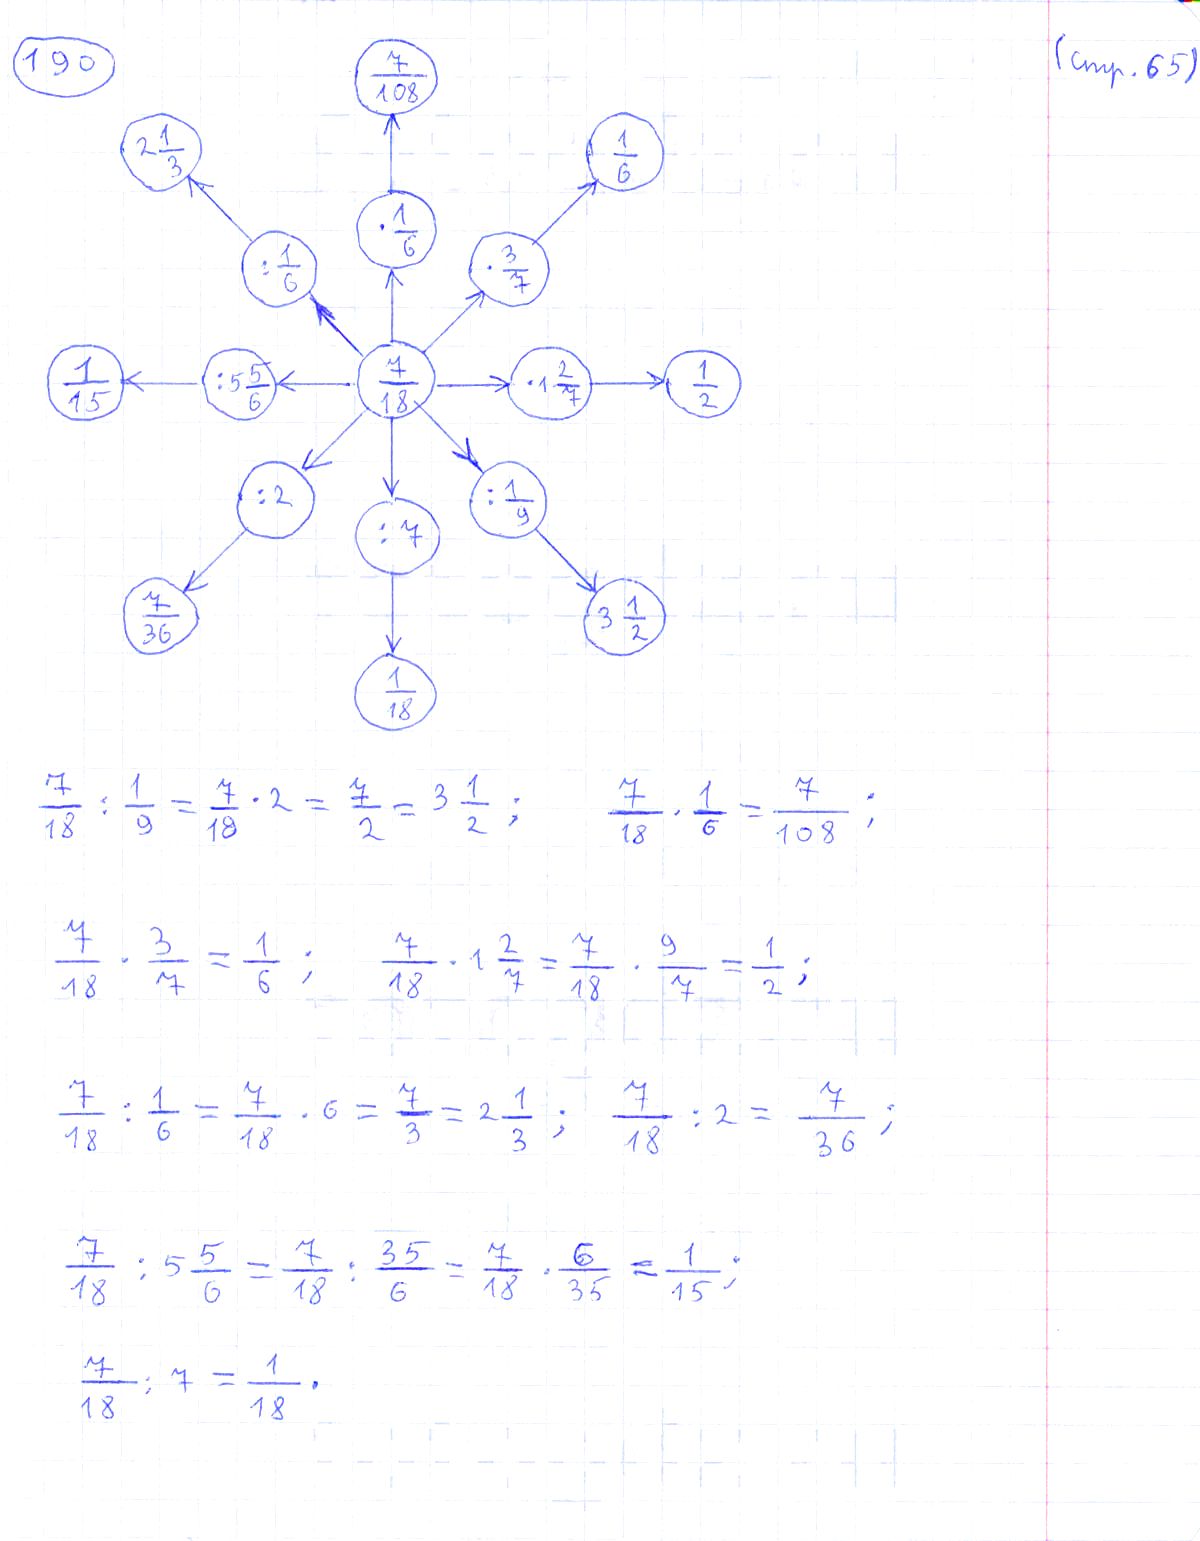 190
(стр. 65)
7/108
2 1/3
1/6
· 1/6
: 1/6
· 3/7
1/15
: 5 5/6
7/18
· 1 2/7
1/2
: 2
: 7
: 1/9
7/36
3 1/2
1/18
7/18 : 1/9 = 7/18 · 2 = 7/2 = 3 1/2 ; 7/18 · 1/6 = 7/108 ;
7/18 · 3/7 = 1/6 ; 7/18 · 1 2/7 = 7/18 · 9/7 = 1/2 ;
7/18 : 1/6 = 7/18 · 6 = 7/3 = 2 1/3 ; 7/18 : 2 = 7/36 ;
7/18 : 5 5/6 = 7/18 : 35/6 = 7/18 · 6/35 = 1/15 ;
7/18 : 7 = 1/18 .